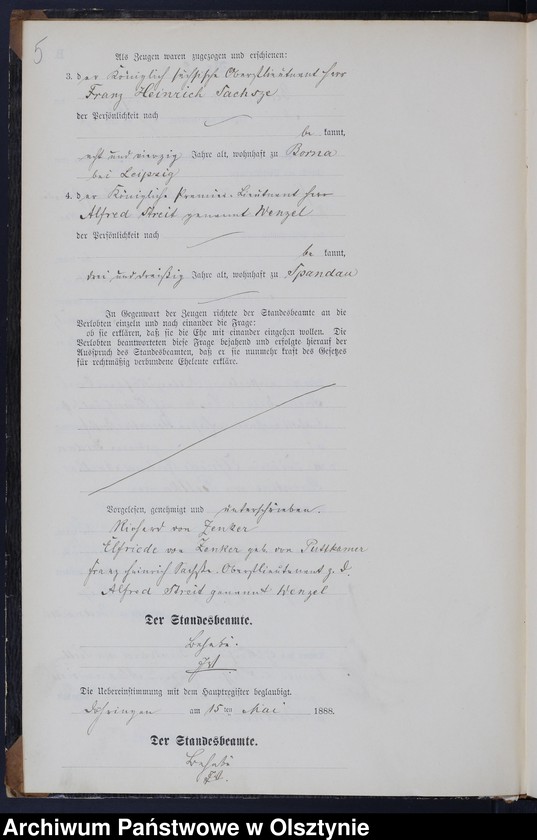 5
Als Zeugen waren zugezogen und erschienen:
3. der Königlich sächsische Oberstlieutnant Herr
Franz Heinrich Sachsze
der Persönlichkeit nach
be kannt,
acht und vierzig Jahre alt, wohnhaft zu Borna
bei Leipzig
4. der Königliche Premier-Lieutnant Herr
Alfred Streit genannt Wenzel
der Persönlichkeit nach
be kannt,
drei und dreißig Jahre alt, wohnhaft zu Spandau
In Gegenwart der Zeugen richtete der Standesbeamte an die
Verlobten einzeln und nach einander die Frage:
ob sie erklären, daß sie die Ehe mit einander eingehen wollen. Die
Verlobten beantworteten diese Frage bejahend und erfolgte hierauf der
Ausspruch des Standesbeamten, daß er sie nunmehr kraft des Gesetzes
für rechtmäßig verbundene Eheleute erkläre.
Vorgelesen, genehmigt und unterschrieben.
Richard von Zenker
Elfriede von Zenker geb. von Puttkamer
Franz Heinrich Sachsze. Oberstlieutenant z. D.
Alfred Streit genannt Wenzel
Der Standesbeamte.
Die Uebereinstimmung mit dem Hauptregister beglaubigt.
Döhringen am 15ten Mai 1888.
Der Standesbeamte.
Archiwum Państwowe w Olsztynie